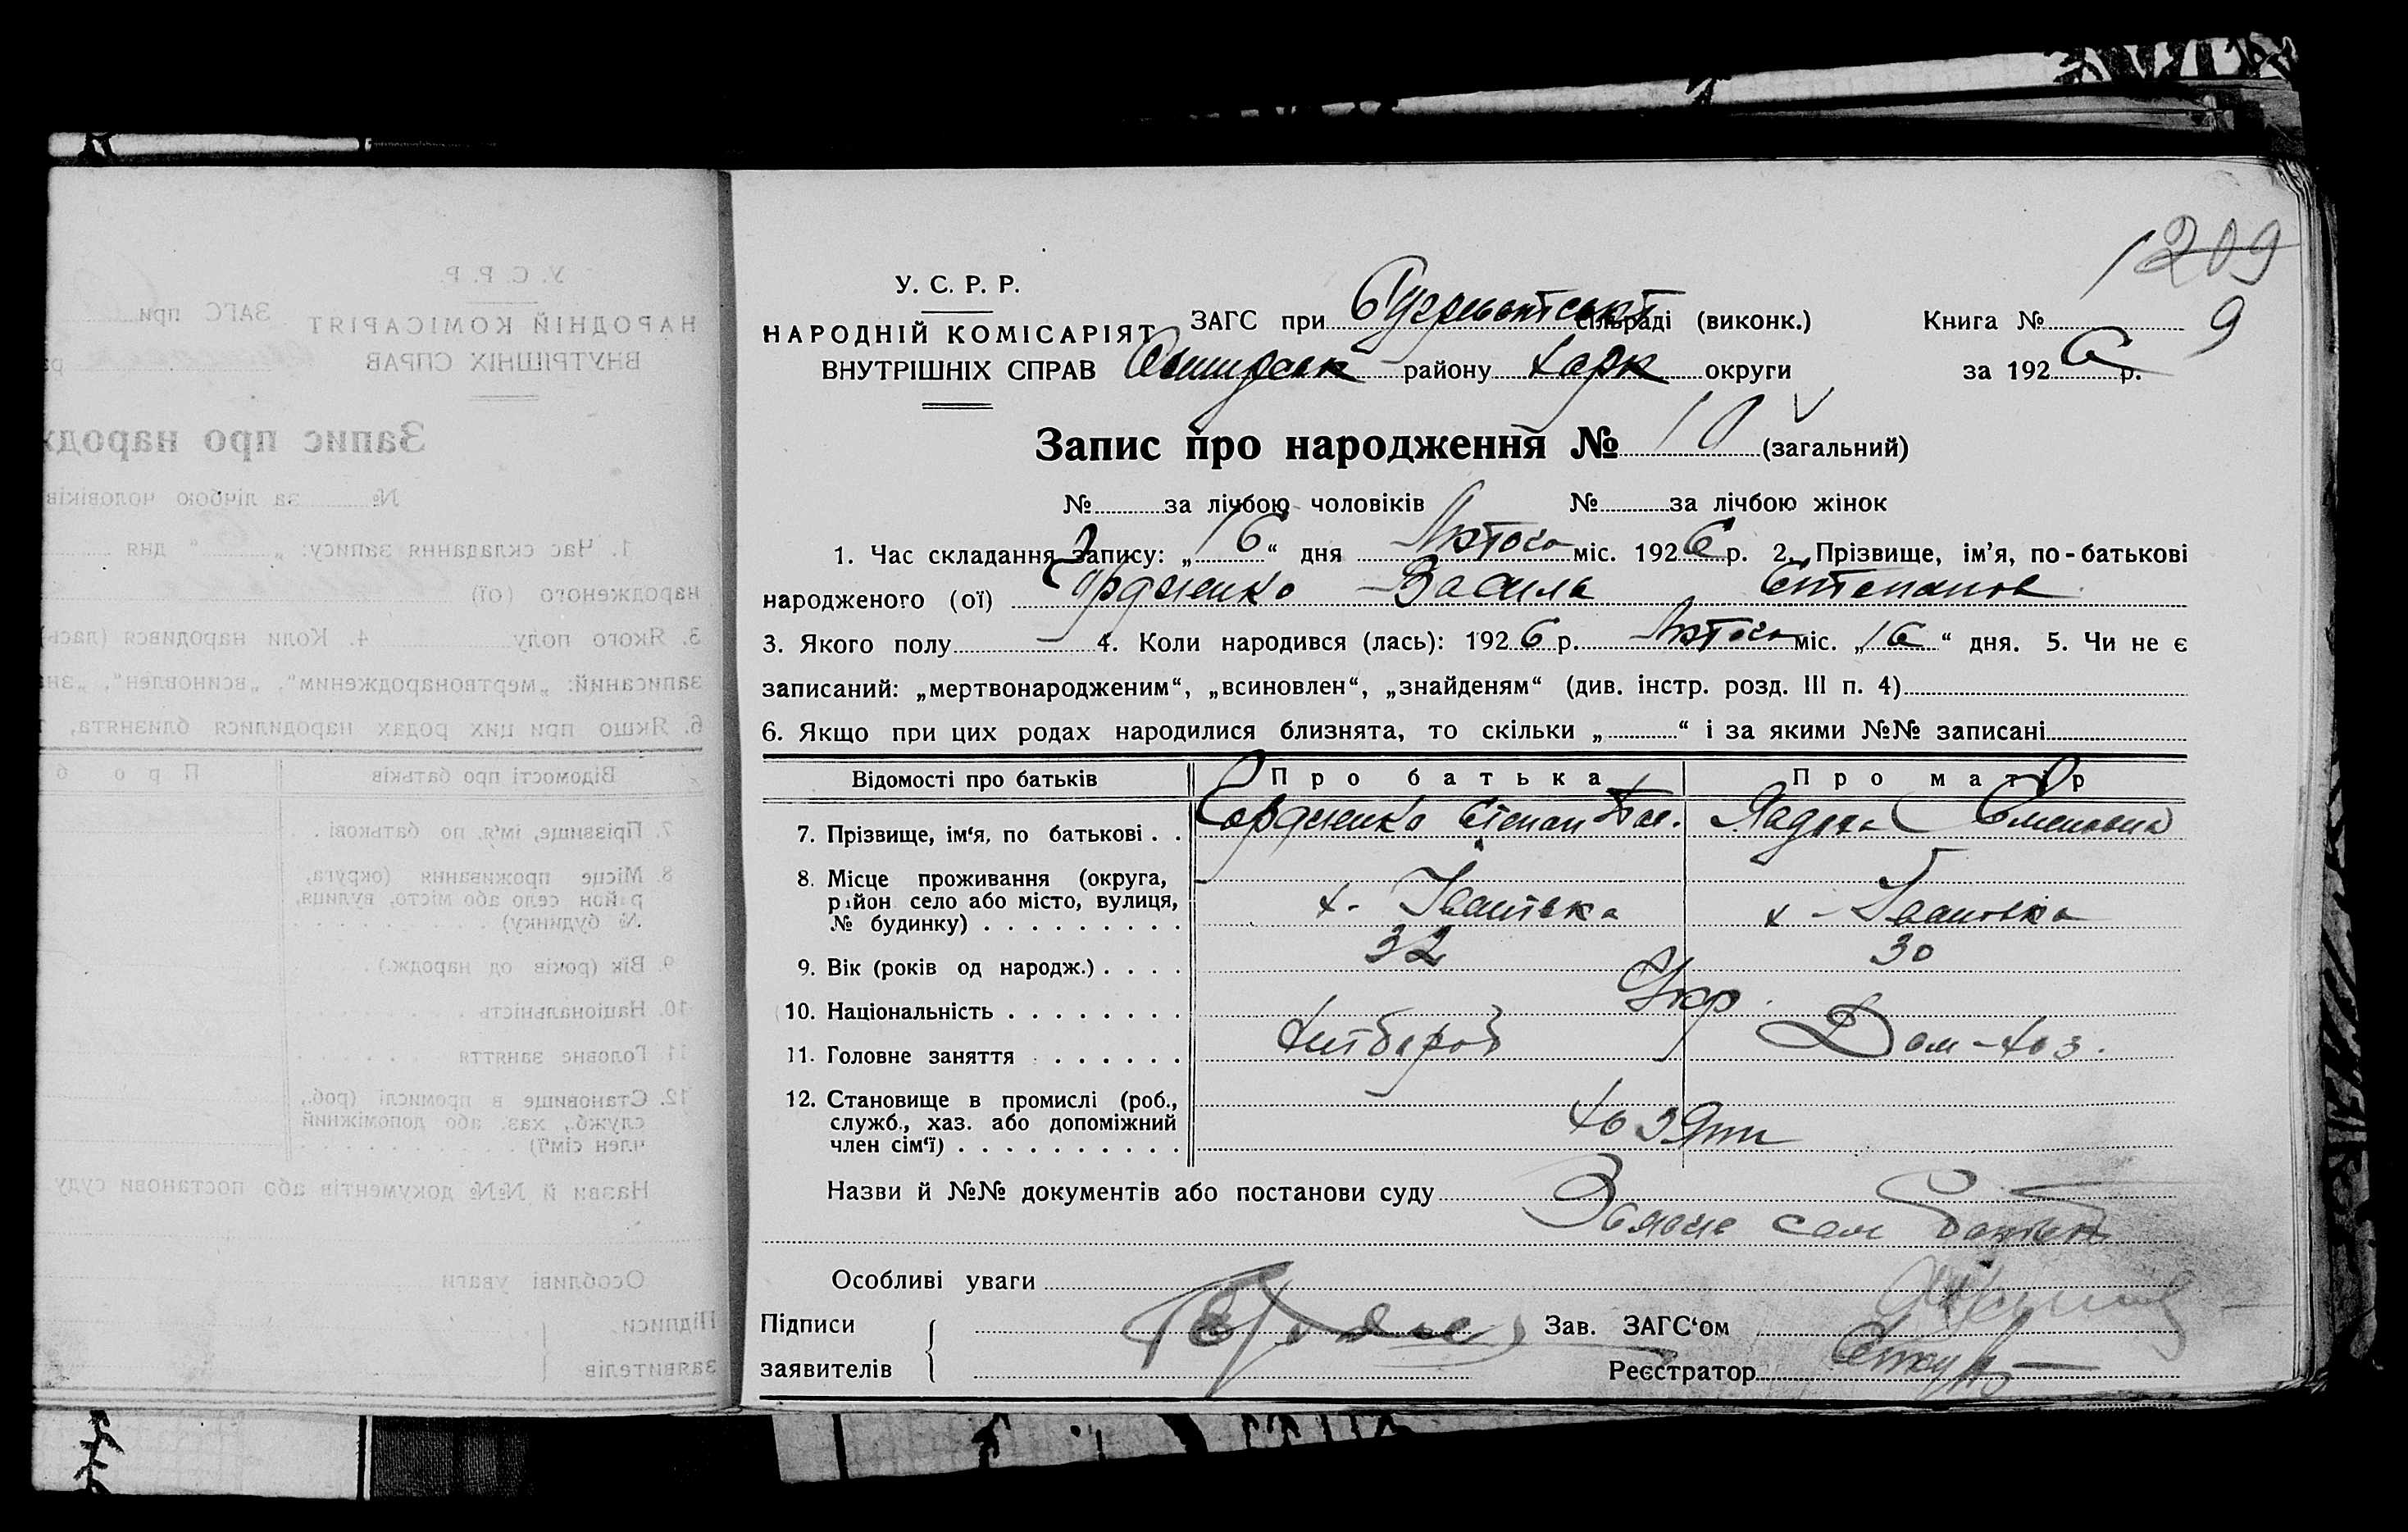 1209
9
У. С. Р. Р.
НАРОДНІЙ КОМІСАРІЯТ
ВНУТРІШНІХ СПРАВ
ЗАГС при сільраді (виконк.) Книга №
району Харк округи за 1926 р.
Запис про народження № 10 (загальний)
№ за лічбою чоловіків № за лічбою жінок
1. Час складання запису: „16“ дня Лютого міс. 1926 р. 2. Прізвище, ім'я, по-батькові
народженого (ої) Гордиенко Васила Степанов
3. Якого полу — 4. Коли народився (лась): 1926 р. Лютого міс. „16“ дня. 5. Чи не є
записаний: „мертвонародженим“, „всиновлен“, „знайденям“ (див. інстр. розд. III п. 4)
6. Якщо при цих родах народилися близнята, то скільки „ “ і за якими №№ записані
Відомості про батьків Про батька Про матір
7. Прізвище, ім'я, по батькові . . Гордиенко Степан Семеновна
8. Місце проживання (округа,
район село або місто, вулиця,
№ будинку) х. Івановка х - Івановка
9. Вік (років од народж.) . . . . 32 30
10. Національність Укр.
11. Головне заняття Хлібороб Дом-хоз.
12. Становище в промислі (роб.,
служб., хаз. або допоміжний
член сім'ї)
Назви й №№ документів або постанови суду
сам батько
Особливі уваги
Підписи Зав. ЗАГС'ом
заявителів Реєстратор